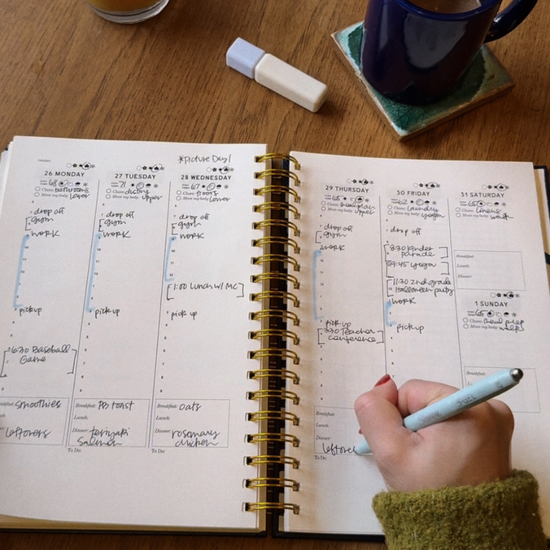 *Picture Day!
26 MONDAY
68
Chore: bathrooms
Move my body: Lower
drop off
gym
WORK
pick up
6:30 Baseball
Game
Breakfast: smoothies
Lunch:
Dinner:
leftovers
27 TUESDAY
71
Chore: dusting
Move my body: upper
drop off
gym
WORK
pick up
Breakfast: PB toast
Lunch:
Dinner: teriyaki
salmon
To Do
28 WEDNESDAY
67
Chore: floors
Move my body: Lower
drop off
gym
WORK
1:00 lunch w/ MC
pick up
Breakfast: oats
Lunch:
Dinner: rosemary
chicken
29 THURSDAY
65
Chore: meal plan
Move my body: upper
drop off
gym
WORK
pick up
Teacher
conference
Breakfast:
Lunch:
Dinner:
leftove
To Do
30 FRIDAY
62
Chore: laundry
Move my body:
drop off
8:30 kinder
parade
9:45 yoga
11:30 2nd grade
Halloween party
WORK
pick up
31 SATURDAY
Chore: linens
Move my body: walk
Breakfast:
Lunch:
Dinner:
1 SUNDAY
Chore: meal prep
Move my body:
Breakfast:
Lunch:
Dinner: